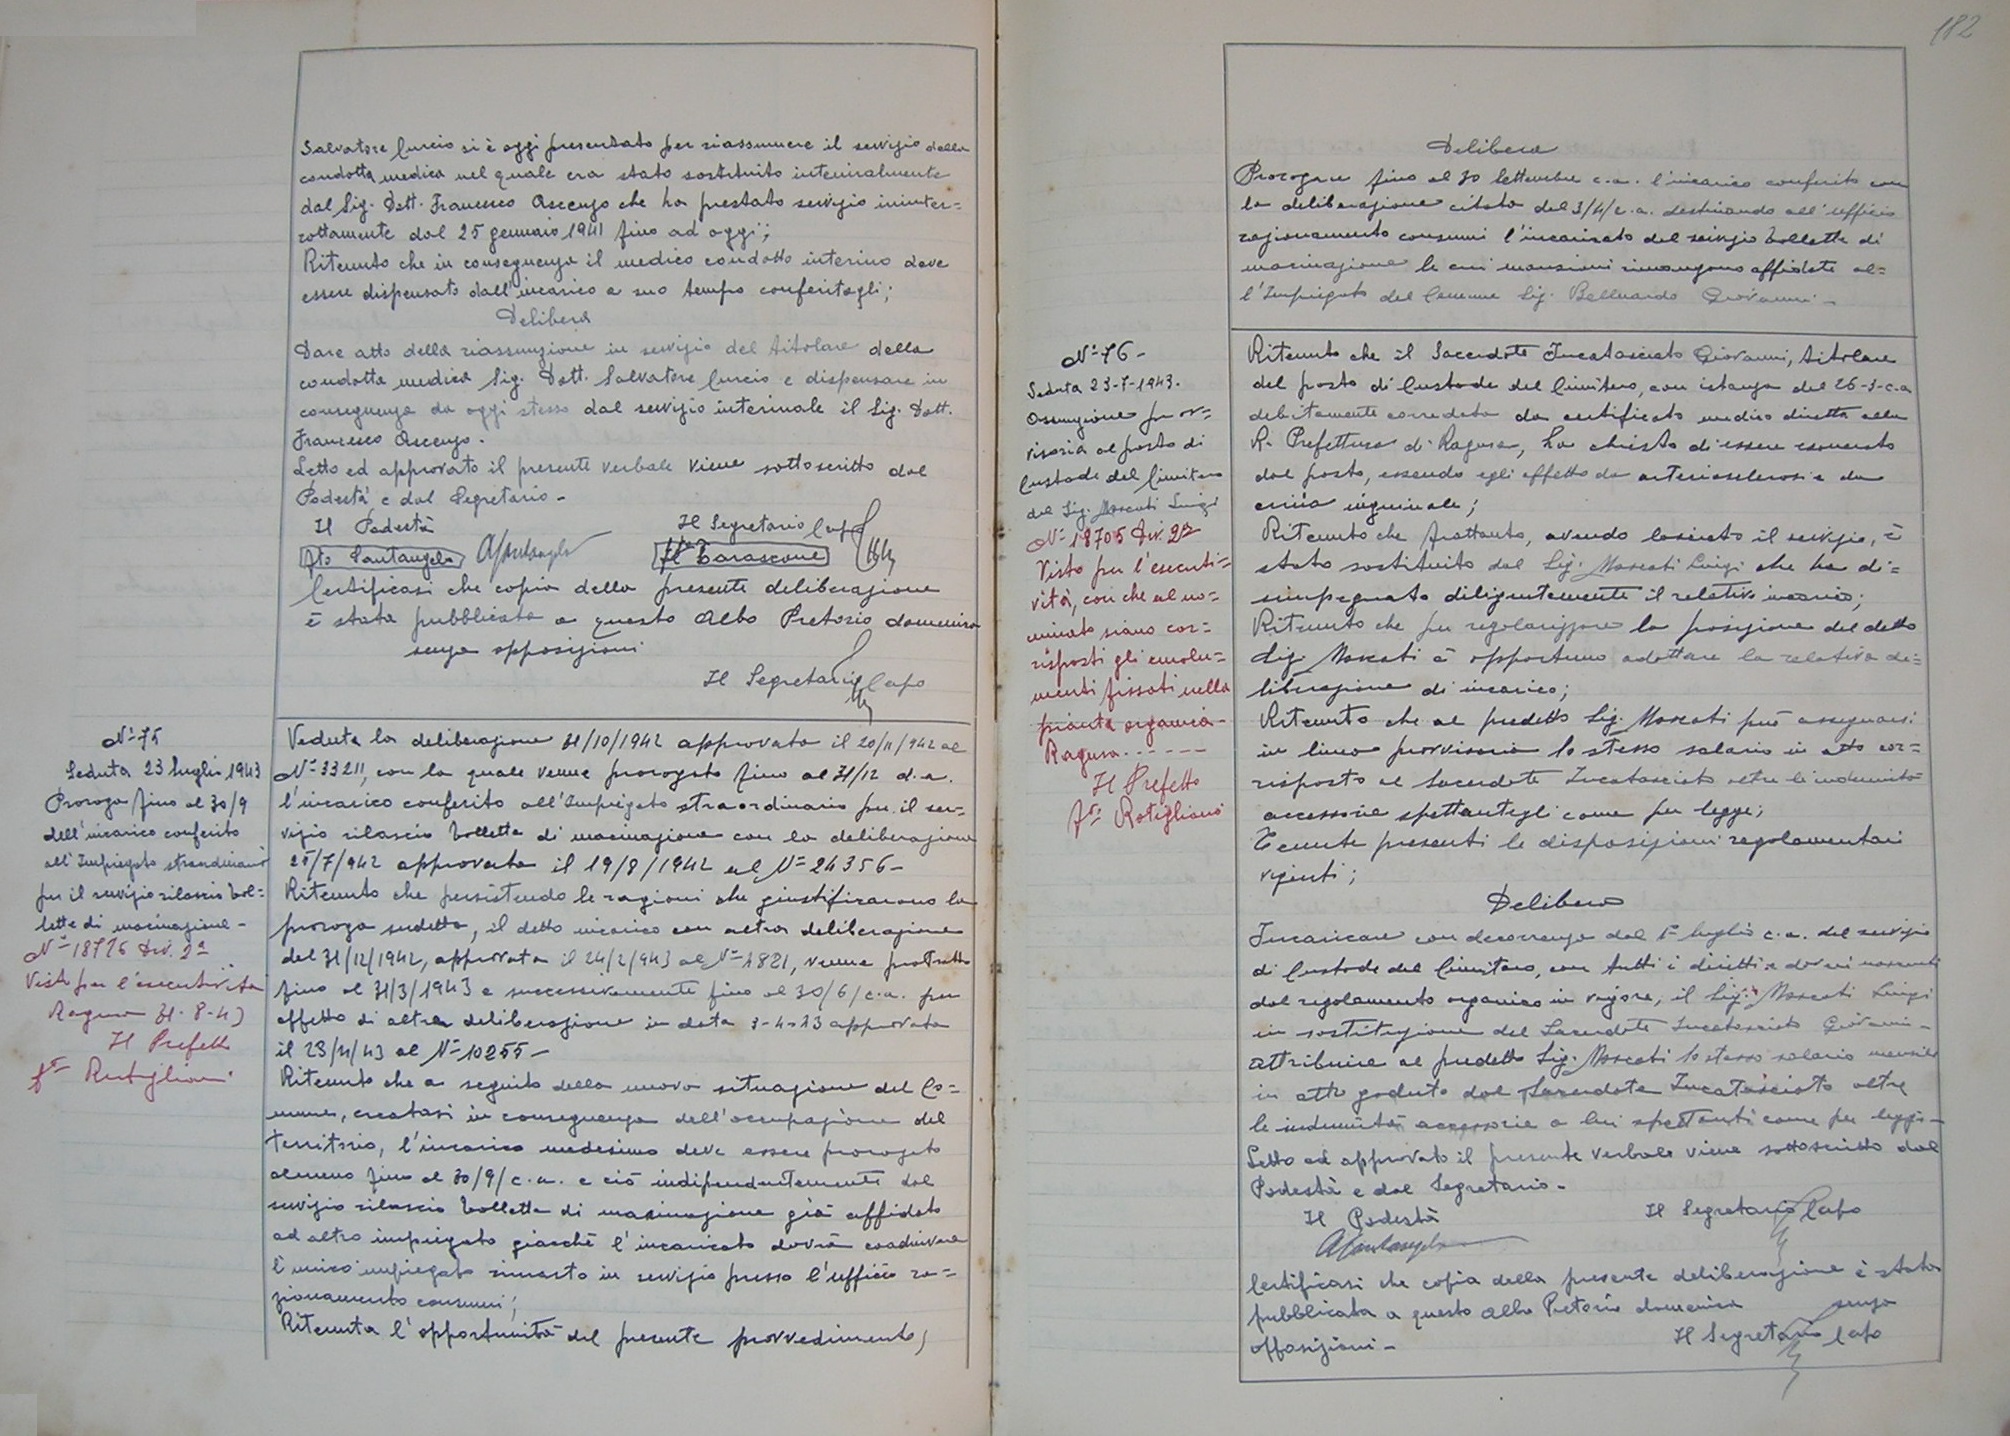 Salvatore Curcio si è oggi presentato per riassumere il servizio della
condotta medica nel quale era stato sostituito interinalmente
dal Sig. Dott. Francesco Ascenzo che ha prestato servizio ininter=
rottamente dal 25 gennaio 1941 fino ad oggi;
Ritenuto che in conseguenza il medico condotto interino deve
essere dispensato dall'incarico a suo tempo conferitogli;
Delibera
Dare atto della riassunzione in servizio del titolare della
condotta medica Sig. Dott. Salvatore Curcio e dispensare in
conseguenza da oggi stesso dal servizio interinale il Sig. Dott.
Francesco Ascenzo.
Letto ed approvato il presente verbale viene sottoscritto dal
Podestà e dal Segretario -
Il Podestà
Il Segretario Capo
fto Santangelo
ASantangelo
fto Tarascone
Certificasi che copia della presente deliberazione
è stata pubblicata a questo Albo Pretorio domenica
senza opposizioni
Il Segretario Capo
N= 75
Seduta 23 luglio 1943
Proroga fino al 30/9
dell'incarico conferito
all'Impiegato straordinario
per il servizio rilascio bol=
lette di macinazione -
N= 18776 Div. 2ª
Visto per l'esecutività
Ragusa 31-8-43
Il Prefetto
fto
Veduta la deliberazione 31/10/1942 approvata il 20/11/942 al
N= 33211, con la quale venne prorogato fino al 31/12 d.a.
l'incarico conferito all'Impiegato straordinario per il ser=
vizio rilascio bollette di macinazione con la deliberazione
25/7/942 approvata il 19/8/1942 al N= 24356 -
Ritenuto che persistendo le ragioni che giustificarono la
proroga sudetta, il detto incarico con altra deliberazione
del 31/12/1942, approvata il 24/2/943 al N= 1821, venne protratto
fino al 31/3/1943 e successivamente fino al 30/6/c.a. per
effetto di altra deliberazione in data 3-4-43 approvata
il 23/4/43 al N= 10255 -
Ritenuto che a seguito della nuova situazione del Co=
mune, creatasi in conseguenza dell'occupazione del
territorio, l'incarico medesimo deve essere prorogato
almeno fino al 30/9/c.a. e ciò indipendentemente dal
servizio rilascio bollette di macinazione già affidato
ad altro impiegato giacchè l'incaricato dovrà coadiuvare
l'unico impiegato rimasto in servizio presso l'ufficio ra=
zionamento consumi;
Ritenuta l'opportunità del presente provvedimento;
182
Delibera
Prorogare fino al 30 Settembre c.a. l'incarico conferito con
la deliberazione citata del 3/4/c.a. destinando all'ufficio
razionamento consumi l'incaricato del servizio bollette di
macinazione le cui mansioni rimangono affidate al=
l'Impiegato del Comune Sig. Belluardo Giovanni -
N= 76 -
Seduta 23-7-1943.
Assunzione prov=
visoria al posto di
Custode del Cimitero
del Sig. Moscati Luigi
N= 18705 Div. 2ª
Visto per l'esecuti=
vità, con che al no=
minato siano cor=
risposti gli emolu=
menti fissati nella
pianta organica -
Ragusa ------
Il Prefetto
fto
Ritenuto che il Sacerdote Incatasciato Giovanni, titolare
del posto di Custode del Cimitero, con istanza del 26-3-c.a
debitamente corredata da certificato medico diretta alla
R. Prefettura di Ragusa, ha chiesto di essere esonerato
dal posto, essendo egli affetto da arteriosclerosi e da
ernia inguinale;
Ritenuto che frattanto, avendo lasciato il servizio, è
stato sostituito dal Sig. Moscati Luigi che ha di=
simpegnato diligentemente il relativo incarico;
Ritenuto che per regolarizzare la posizione del detto
Sig. Moscati è opportuno adottare la relativa de=
liberazione di incarico;
Ritenuto che al predetto Sig. Moscati può assegnarsi
in linea provvisoria lo stesso salario in atto cor=
risposto al Sacerdote Incatasciato oltre le indennità
accessorie spettantegli come per legge;
Tenute presenti le disposizioni regolamentari
vigenti;
Delibera
Incaricare con decorrenza dal 1° luglio c.a. del servizio
di Custode del Cimitero, con tutti i diritti e doveri nascenti
dal regolamento organico in vigore, il Sig. Moscati Luigi
in sostituzione del Sacerdote Incatasciato Giovanni -
attribuire al predetto Sig. Moscati lo stesso salario mensile
in atto goduto dal Sacerdote Incatasciato oltre
le indennità accessorie a lui spettanti come per legge -
Letto ed approvato il presente verbale viene sottoscritto dal
Podestà e dal Segretario -
Il Podestà
Il Segretario Capo
ASantangelo
Certificasi che copia della presente deliberazione è stata
pubblicata a questo Albo Pretorio domenica senza
opposizioni -
Il Segretario Capo